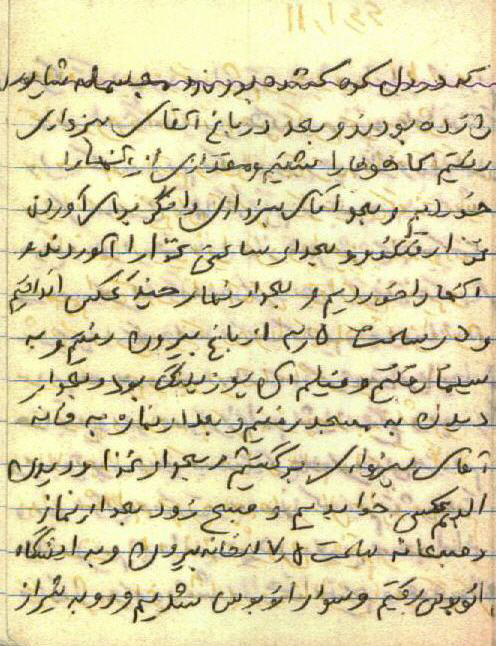 که در دل کوه کنده بودند و مجسمه شاپور
را زده بودند و بعد در باغ آقای سبزواری
رفتیم کاهوها را شستیم و مقداری از آنها را
خوردیم و بعد آقای سبزواری و اکبر برای آوردن
غذا رفتند و بعد از ساعتی غذا را آوردند و
آنها را خوردیم و بعد از نماز چند عکس انداختیم
و در ساعت ۵ از باغ بیرون رفتیم و به
سینما رفتیم و فیلم بود و بعد از
دیدن به مسجد رفتیم و بعد از نماز به خانه
آقای سبزواری برگشتیم و بعد از غذا و دیدن
آلبم عکس خوابیدیم و صبح زود بعد از نماز
و صبحانه ساعت ۷٫۵ از خانه بیرون و به ایستگاه
اتوبوس رفتیم و سوار اتوبوس شدیم و رو به شیراز